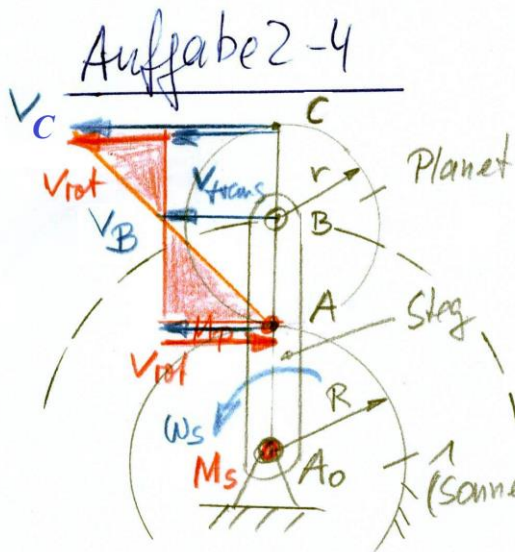 Aufgabe 2-4
V
C
C
V rot
V trans
r
Planet
V B
B
A
Steg
Mp
V rot
ωs
R
Ms
A₀
1
(Sonne